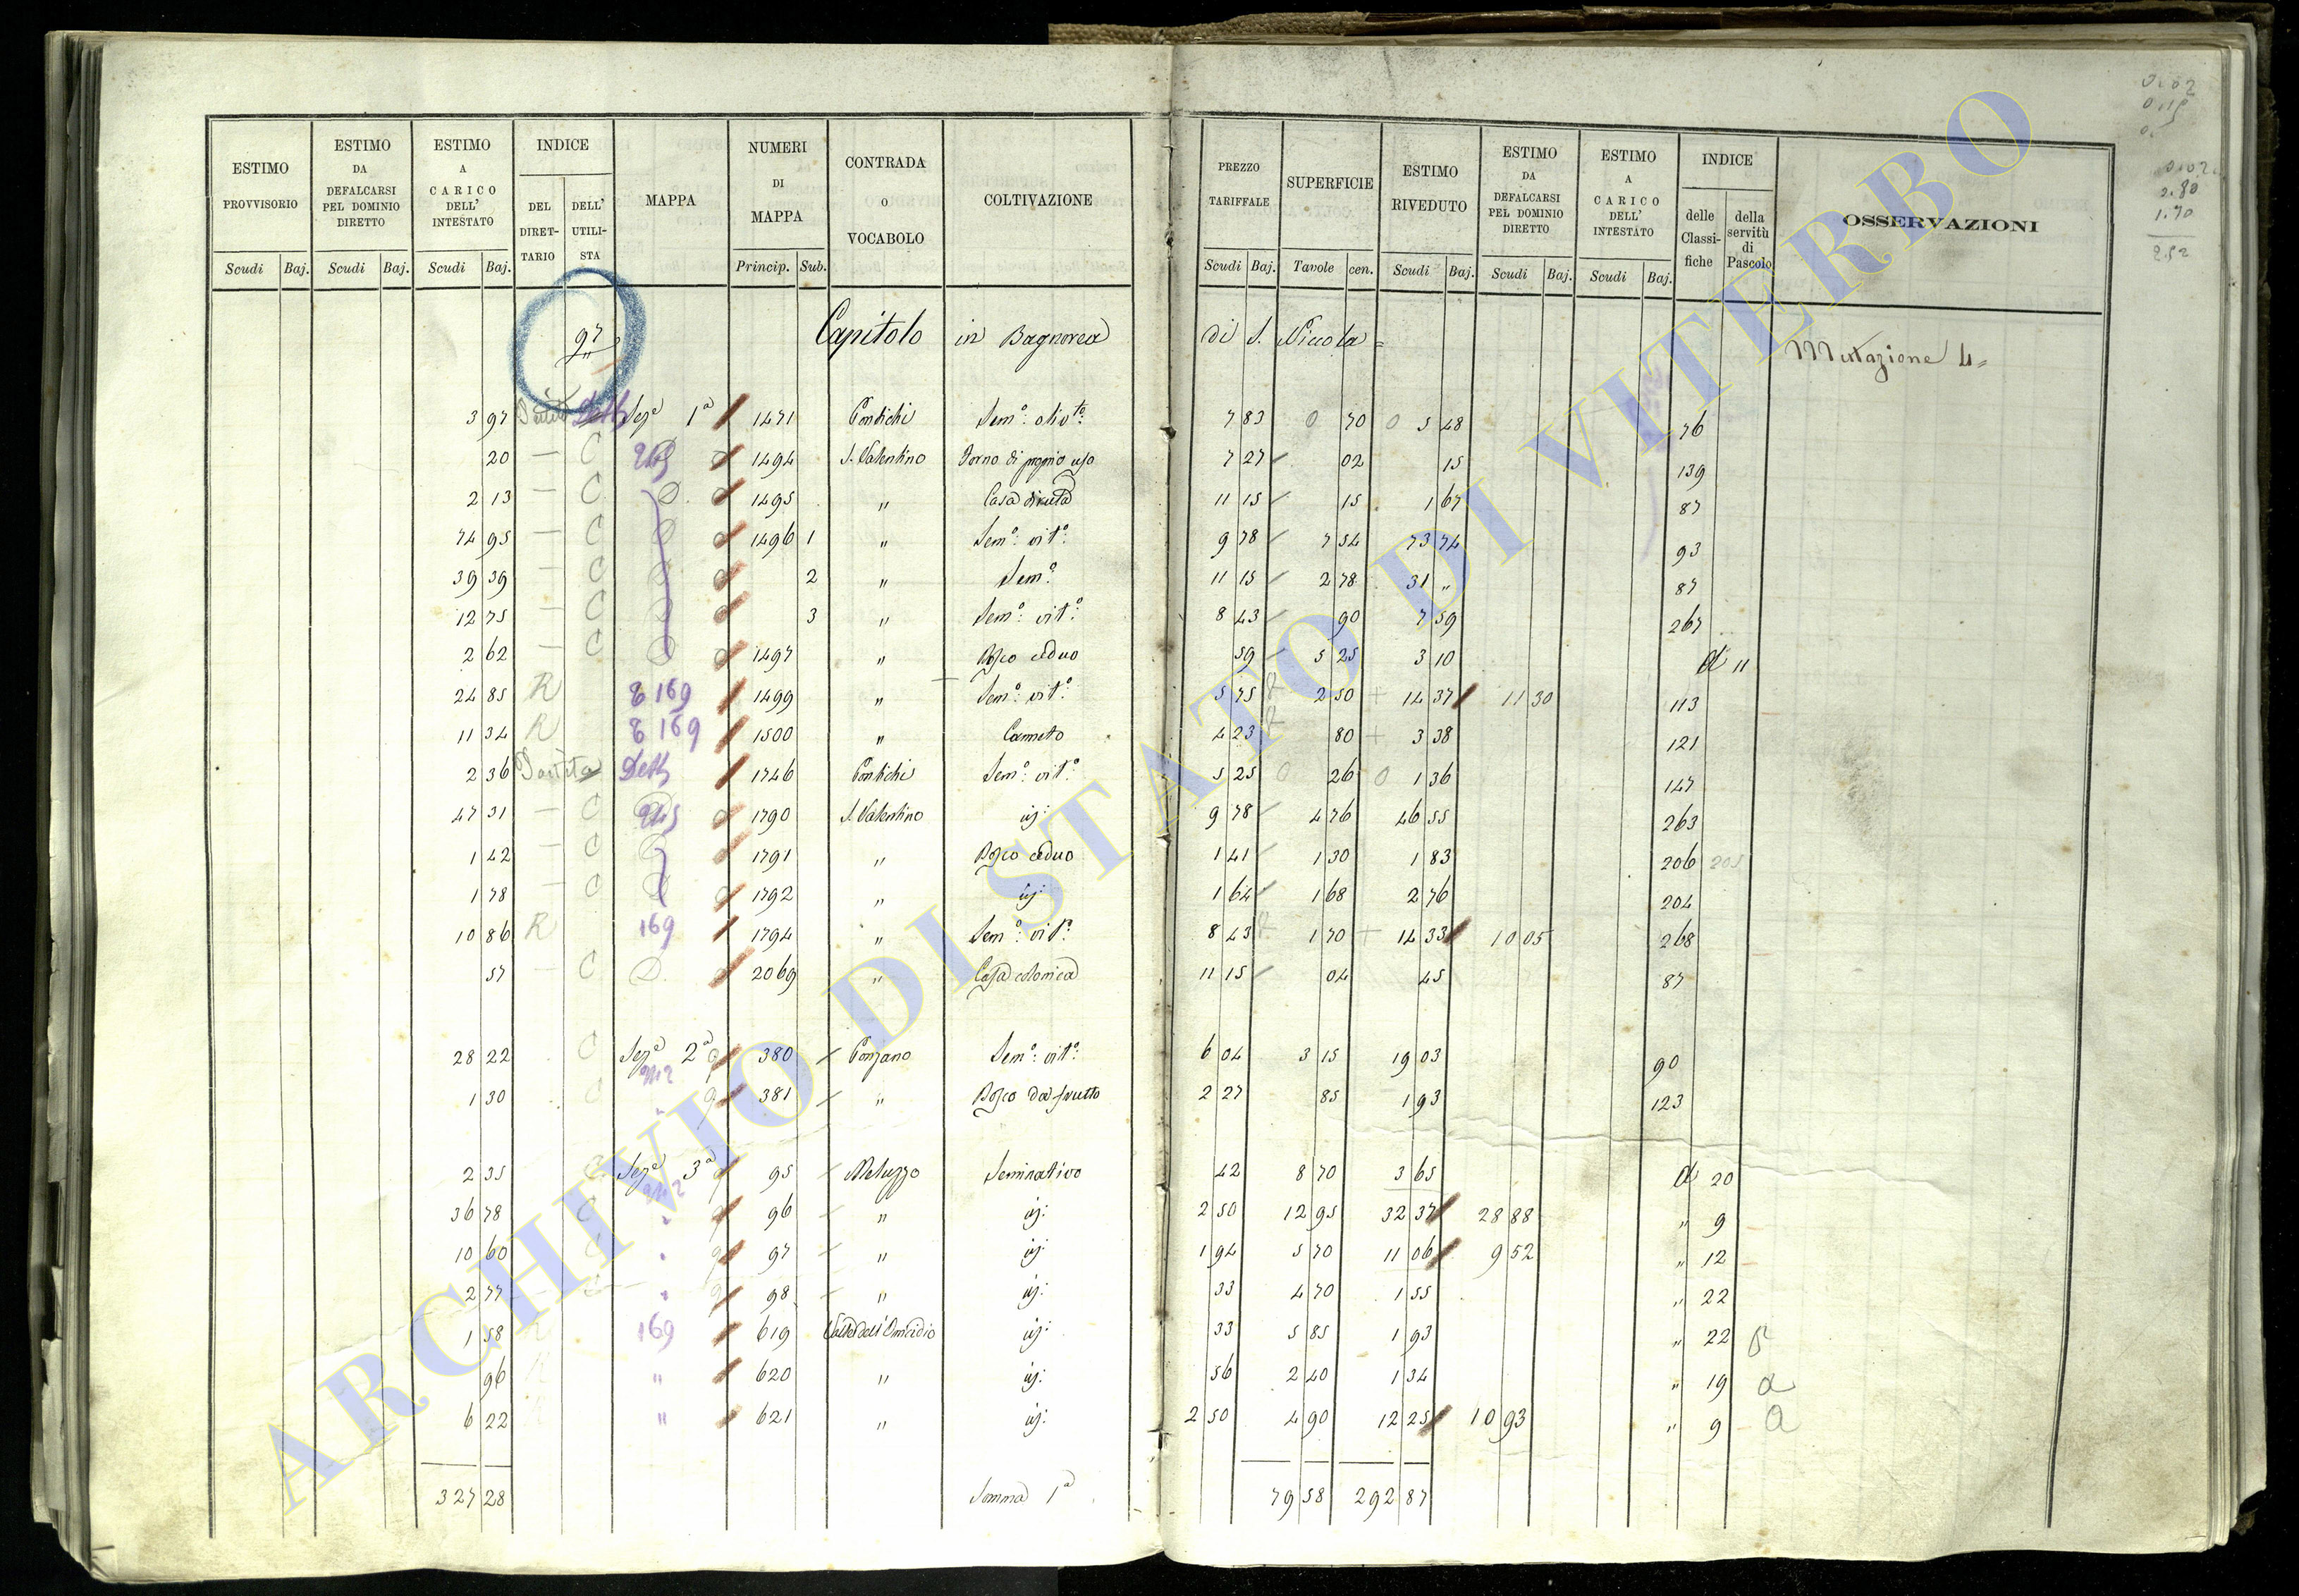 ESTIMO PROVVISORIO | ESTIMO DA DEFALCARSI PEL DOMINIO DIRETTO | ESTIMO A CARICO DELL' INTESTATO | INDICE | MAPPA | NUMERI DI MAPPA | CONTRADA o VOCABOLO | COLTIVAZIONE | PREZZO TARIFFALE | SUPERFICIE | ESTIMO RIVEDUTO | ESTIMO DA DEFALCARSI PEL DOMINIO DIRETTO | ESTIMO A CARICO DELL' INTESTATO | INDICE | OSSERVAZIONI
DEL DIRETTARIO | DELL' UTILISTA | delle Classifiche | della servitù di Pascolo
Scudi | Baj. | Scudi | Baj. | Scudi | Baj. | Princip. | Sub. | Scudi | Baj. | Tavole | cen. | Scudi | Baj. | Scudi | Baj. | Scudi | Baj.
97 Capitolo in Bagnorea di S. Niccola = Mutazione 4=
3 97 Sezª 1ª 1471 Pontichi Semº: olivtº: 7 83 0 70 0 5 48 76
20 — C 1494 S. Valentino Forno di proprio uso 7 27 02 15 139
2 13 — C 1495 " Casa diruta 11 15 15 1 67 87
74 95 — C 1496 1 " Semº: vitº: 9 78 7 54 73 74 93
39 39 — C 2 " Semº: 11 15 2 78 31 " 87
12 75 — C 3 " Semº: vitº: 8 43 90 7 59 267
2 62 — C 1497 " Bosco ceduo 59 5 25 3 10 a 11
24 85 R 169 1499 " Semº: vitº: 5 75 2 50 + 14 37 11 30 113
11 34 R 169 1500 " Canneto 4 23 80 + 3 38 121
2 36 Partita 1746 Pontichi Semº: vitº: 5 25 0 26 0 1 36 147
47 31 — C 1790 S. Valentino id: 9 78 4 76 46 55 263
1 42 — C 1791 " Bosco ceduo 1 41 1 30 1 83 206 205
1 78 — C 1792 " id: 1 64 1 68 2 76 204
10 86 R 169 1794 " Semº: vitº: 8 43 1 70 + 14 33 10 05 268
57 — C 2069 " Casa colonica 11 15 04 45 87
28 22 C Sezª 2ª 380 Ponzano Semº: vitº: 6 04 3 15 19 03 90
1 30 C 381 " Bosco da frutto 2 27 85 1 93 123
2 35 C Sezª 3ª 95 Seminativo 42 8 70 3 65 a 20
36 78 C 96 " id: 2 50 12 95 32 37 28 88 " 9
10 60 C 97 " id: 1 94 5 70 11 06 9 52 " 12
2 77 C 98 " id: 33 4 70 1 55 " 22
1 58 169 619 id: 33 5 85 1 93 " 22
96 " 620 " id: 56 2 40 1 34 " 19 a
6 22 " 621 " id: 2 50 4 90 12 25 10 93 " 9 a
327 28 Somma 1ª 79 58 292 87
0.02
0.15
0.
0.02
2.80
1.70
2.52
ARCHIVIO DI STATO DI VITERBO